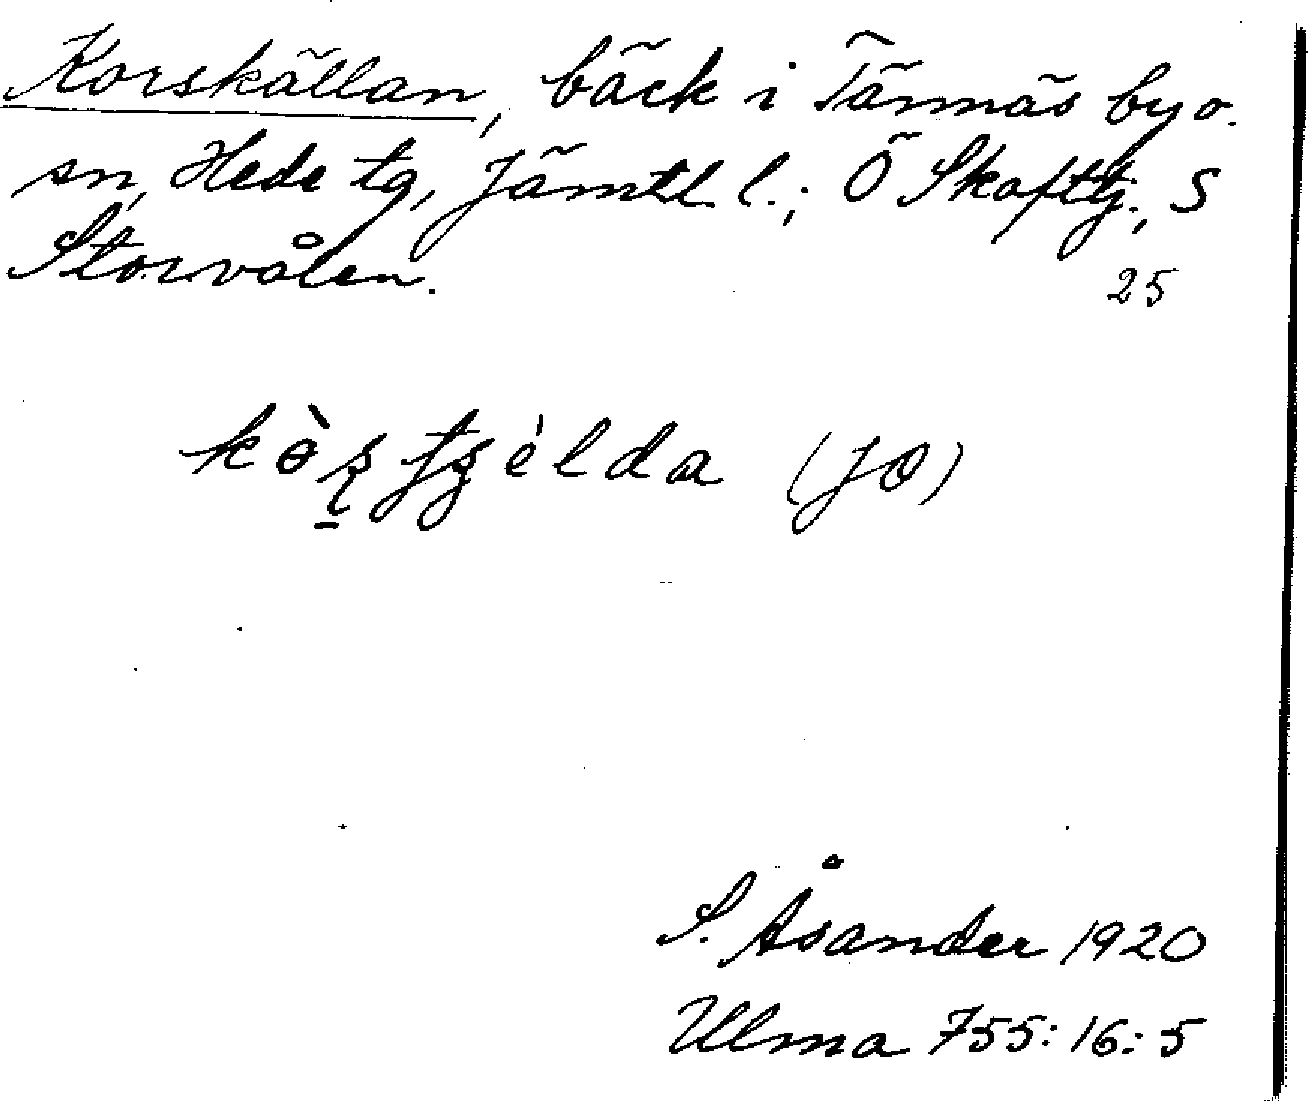 Korskällan, bäck i Tännäs by o.
sn, Hede tg, Jämtl l.; Ö Skafttj., S
Storvålen.
25
(JO)
S. Åsander 1920
Ulma 755:16:5